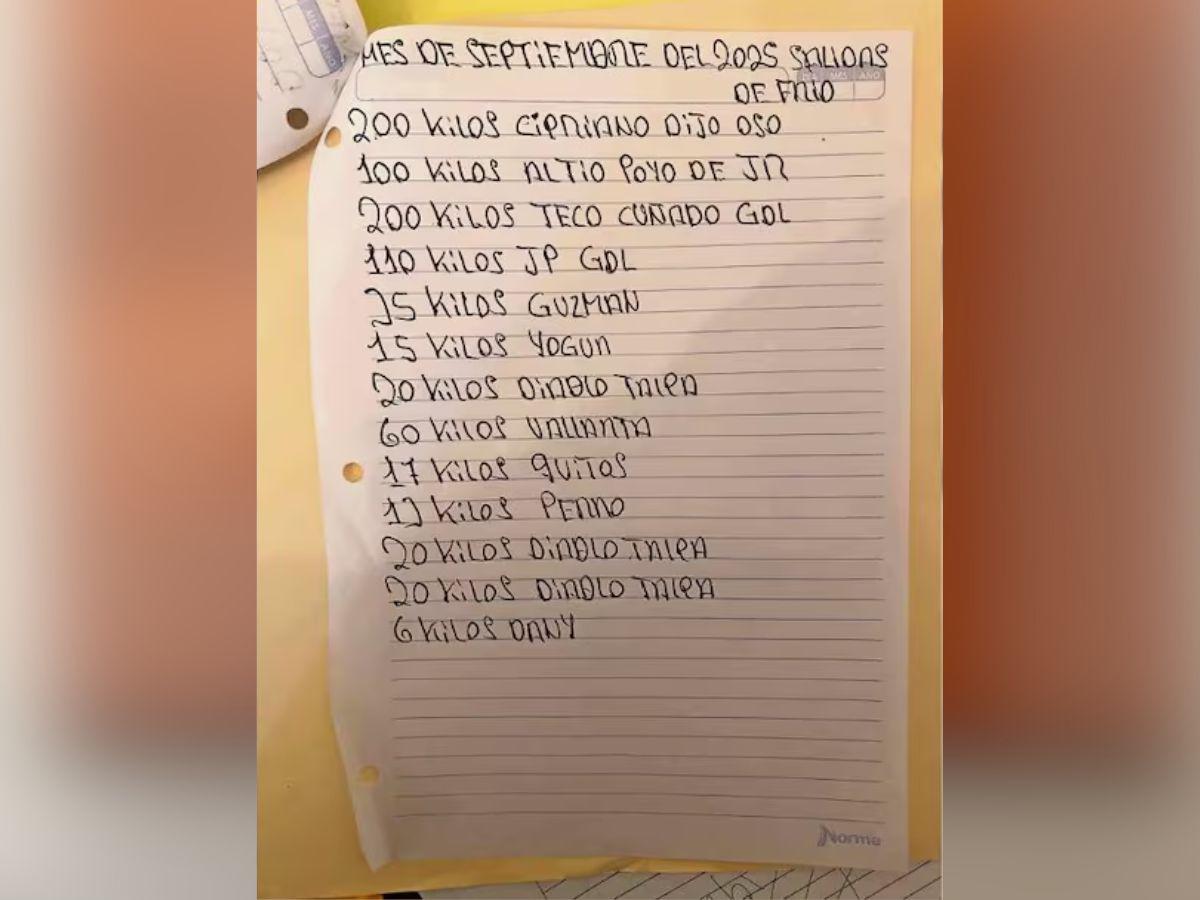 MES DE SEPTIEMBRE DEL 2025 SALIDAS
DE FRIO
DIA MES AÑO
200 KILOS CIPRIANO DIJO OSO
100 KILOS AL TIO POYO DE JR
200 KILOS TECO CUÑADO GDL
110 KILOS JP GDL
35 KILOS GUZMAN
15 KILOS YOGUR
20 KILOS DIABLO TALPA
60 KILOS VALLARTA
17 KILOS QUITOS
13 KILOS PERRO
20 KILOS DIABLO TALPA
20 KILOS DIABLO TALPA
6 KILOS DANY
Norma